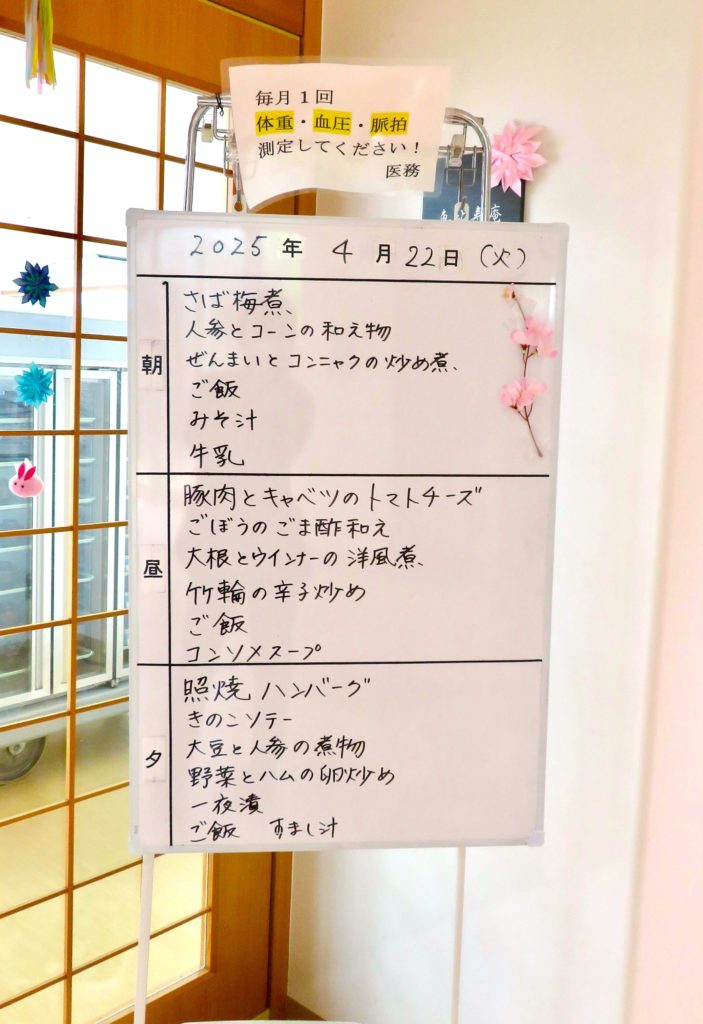 毎月1回
体重・血圧・脈拍
測定してください!
医務
2025年 4月22日(火)
朝
さば梅煮
人参とコーンの和え物
ぜんまいとコンニャクの炒め煮
ご飯
みそ汁
牛乳
昼
豚肉とキャベツのトマトチーズ
ごぼうのごま酢和え
大根とウインナーの洋風煮
竹輪の辛子炒め
ご飯
コンソメスープ
夕
照焼ハンバーグ
きのこソテー
大豆と人参の煮物
野菜とハムの卵炒め
一夜漬
ご飯 すまし汁